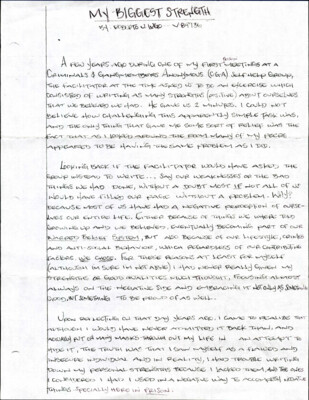 MY BIGGEST STRENGTH
A FEW YEARS AGO DURING ONE OF MY FIRST MEETINGS AT A
CRIMINALS & GANGMEMBERS ANONYMOUS (CGA) SELF HELP GROUP,
THE FACILITATOR AT THE TIME ASKED US TO DO AN EXERCISE WHICH
CONSISTED OF WRITING AS MANY STRENGTHS (POSITIVE) ABOUT OURSELVES
THAT WE BELIEVED WE HAD. HE GAVE US 2 MINUTES. I COULD NOT
BELIEVE HOW CHALLENGING THIS APPARENTLY SIMPLE TASK WAS,
AND THE ONLY THING THAT GAVE ME SOME SORT OF RELIEF WAS THE
FACT THAT AS I LOOKED AROUND THE ROOM MANY OF MY PEERS
APPEARED TO BE HAVING THE SAME PROBLEM AS I DID.
LOOKING BACK IF THE FACILITATOR WOULD HAVE ASKED THE
GROUP INSTEAD TO WRITE... SAY OUR WEAKNESSES OR THE BAD
THINGS WE HAD DONE, WITHOUT A DOUBT MOST IF NOT ALL OF US
WOULD HAVE FILLED OUR PAGE WITHOUT A PROBLEM. WHY?
BECAUSE MOST OF US HAVE HAD A NEGATIVE PERCEPTION OF OURSE-
LVES OUR ENTIRE LIFE. EITHER BECAUSE OF THINGS WE WHERE TOLD
GROWING UP AND WE BELIEVED, EVENTUALLY BECOMING PART OF OUR
WARPED BELIEF SYSTEM, BUT ALSO BECAUSE OF OUR LIFESTYLE, CRIMES
AND ANTI-SOCIAL BEHAVIOR, WHICH REGARDLESS OF OUR CONTRIBUTIVE
FACTORS WE CHOSE. FOR THESE REASONS AT LEAST FOR MYSELF
(ALTHOUGH I'M SURE I'M NOT ALONE) I HAD NEVER REALLY GIVEN MY
STRENGTHS OR GOOD QUALITIES MUCH THOUGHT, FOCUSING ALMOST
ALWAYS ON THE NEGATIVE SIDE AND EMBRACING IT NOT ONLY AS SOMETHING
GOOD, BUT SOMETHING TO BE PROUD OF AS WELL.
UPON REFLECTING ON THAT DAY YEARS AGO, I CAME TO REALIZE THAT
ALTHOUGH I WOULD HAVE NEVER ADMITTED IT BACK THEN, AND
MY LIFE IN AN ATTEMPT TO
HIDE IT, THE TRUTH WAS THAT I SAW MYSELF AS A FLAWED AND
INSECURE INDIVIDUAL AND IN REALITY, I HAD TROUBLE WRITING
DOWN MY PERSONAL STRENGTHS BECAUSE I LACKED THEM, AND THE ONES
I CONSIDERED I HAD I USED IN A NEGATIVE WAY TO ACCOMPLISH NEGATIVE
THINGS ESPECIALLY HERE IN PRISON.